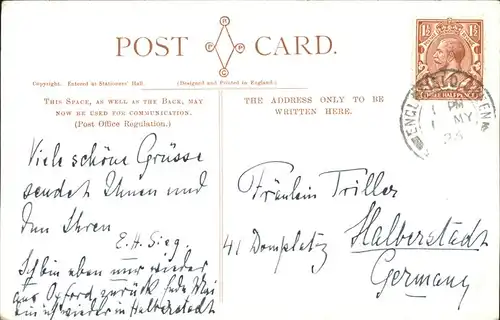 POST CARD.
R P P C
Copyright. Entered at Stationers' Hall.
(Designed and Printed in England.)
THIS SPACE, AS WELL AS THE BACK, MAY
NOW BE USED FOR COMMUNICATION.
(Post Office Regulation.)
THE ADDRESS ONLY TO BE
WRITTEN HERE.
1½ 1½
THREE HALFPENCE
PM
1 MY
Viele schöne Grüsse
sendet Ihnen und
den Ihren
E.H. Sieg.
Ich bin eben nur wieder
aus Oxford zurück Ende Mai
bin ich wieder in Halberstadt
Fräulein Triller
41 Domplatz Halberstadt
Germany